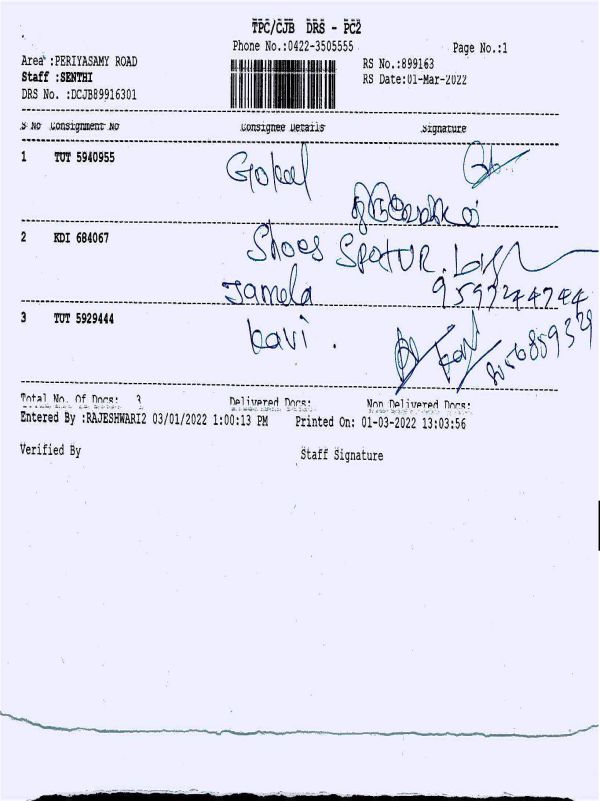 TPC/CJB DRS - PC2
Phone No.:0422-3505555
Page No.:1
Area :PERIYASAMY ROAD
RS No.:899163
Staff :SENTHI
RS Date:01-Mar-2022
DRS No. :DCJB89916301
S No Consignment No Consignee Details Signature
1 TUT 5940955 Gokul
2 KDI 684067 Shoes
Jamela
3 TUT 5929444 kavi .
Total No. Of Docs: 3 Delivered Docs: Non Delivered Docs:
Entered By :RAJESHWARI2 03/01/2022 1:00:13 PM Printed On: 01-03-2022 13:03:56
Verified By Staff Signature